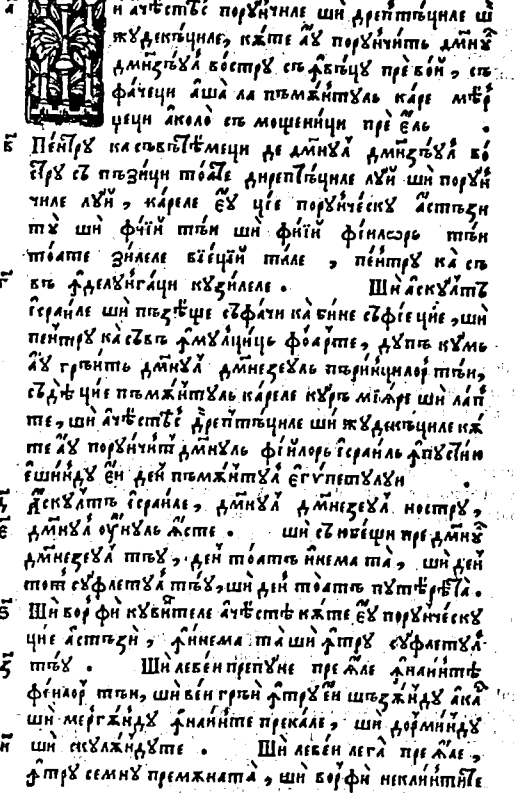 а҃ и ачѣстѣс порꙋнчиле ши дрептъциле ши
жꙋдекъциле, кѫте аꙋ порꙋнчить дм҃нꙋл
дм҃незъꙋл вострꙋ съ ꙟвъцꙋ пре вой, съ
фачеци аша ла пъмѫнтꙋль каре мѣр
цеци аколо съ мощеници пре єль .
в҃ Пентрꙋ ка съ въ темеци де дм҃нꙋл дм҃незъꙋл во
стрꙋ съ пъзици тоате дирептъциле лꙋй ши порꙋн
чиле лꙋй, кареле єꙋ цïе порꙋнческꙋ астъзи
тꙋ ши фïïй тъи ши фïïй фечилѡрь тъи
тоате зилеле вïецïй тале , пентрꙋ ка съ
г҃ въ ꙟделꙋнгаци кꙋ зилеле . Ши аскꙋлтъ
їсраиле ши пъзѣще съ фачи ка бине съ фïе цïе , ши
пентрꙋ ка съ въ ꙟмꙋлциць фоарте, дꙋпъ кꙋмь
аꙋ гръить дм҃нꙋл дм҃незеꙋль пъринцилор тъи,
съ дѣ цïе пъмѫнтꙋль кареле кꙋрѣ мïѧре ши лап
те , ши ачѣстѣс дрептъциле ши жꙋдекъциле кѫ
те аꙋ порꙋнчит дм҃нꙋль фїилорь їсраиль ꙟ пꙋстïю
єшиндꙋ єй дей пъмѫнтꙋл єгѵпетꙋлꙋи .
д҃ Аскꙋлтъ їсраиле, дм҃нꙋл дм҃незеꙋл нострꙋ ,
є҃ дм҃нꙋл оунꙋль ѧсте . ши съ юбещи пре дм҃нꙋл
дм҃незеꙋл тъꙋ , дей тоатъ инема та , ши дей
тот сꙋфлетꙋл тъꙋ, ши дей тоатъ пꙋтѣрѣ та .
ѕ҃ Ши вор фи кꙋвинтеле ачѣстѣ кѫте єꙋ порꙋнческꙋ
цïе астъзи , ꙟ инема та ши ꙟтрꙋ сꙋфлетꙋл
з҃ тъꙋ . Ши ле вей препꙋне пре ѧле ꙟнаинтѣ
фечилор тъи, ши вей гръи ꙟтрꙋ єй шъзѫндꙋ ꙟ касъ
ши мергѫндꙋ ꙟнаинте пре кале, ши дорминдꙋ
и҃ ши скꙋлѫндꙋте . Ши ле вей лега пре ѧле ,
ꙟтрꙋ семнꙋ пре мѫна та , ши вор фи неклинтите